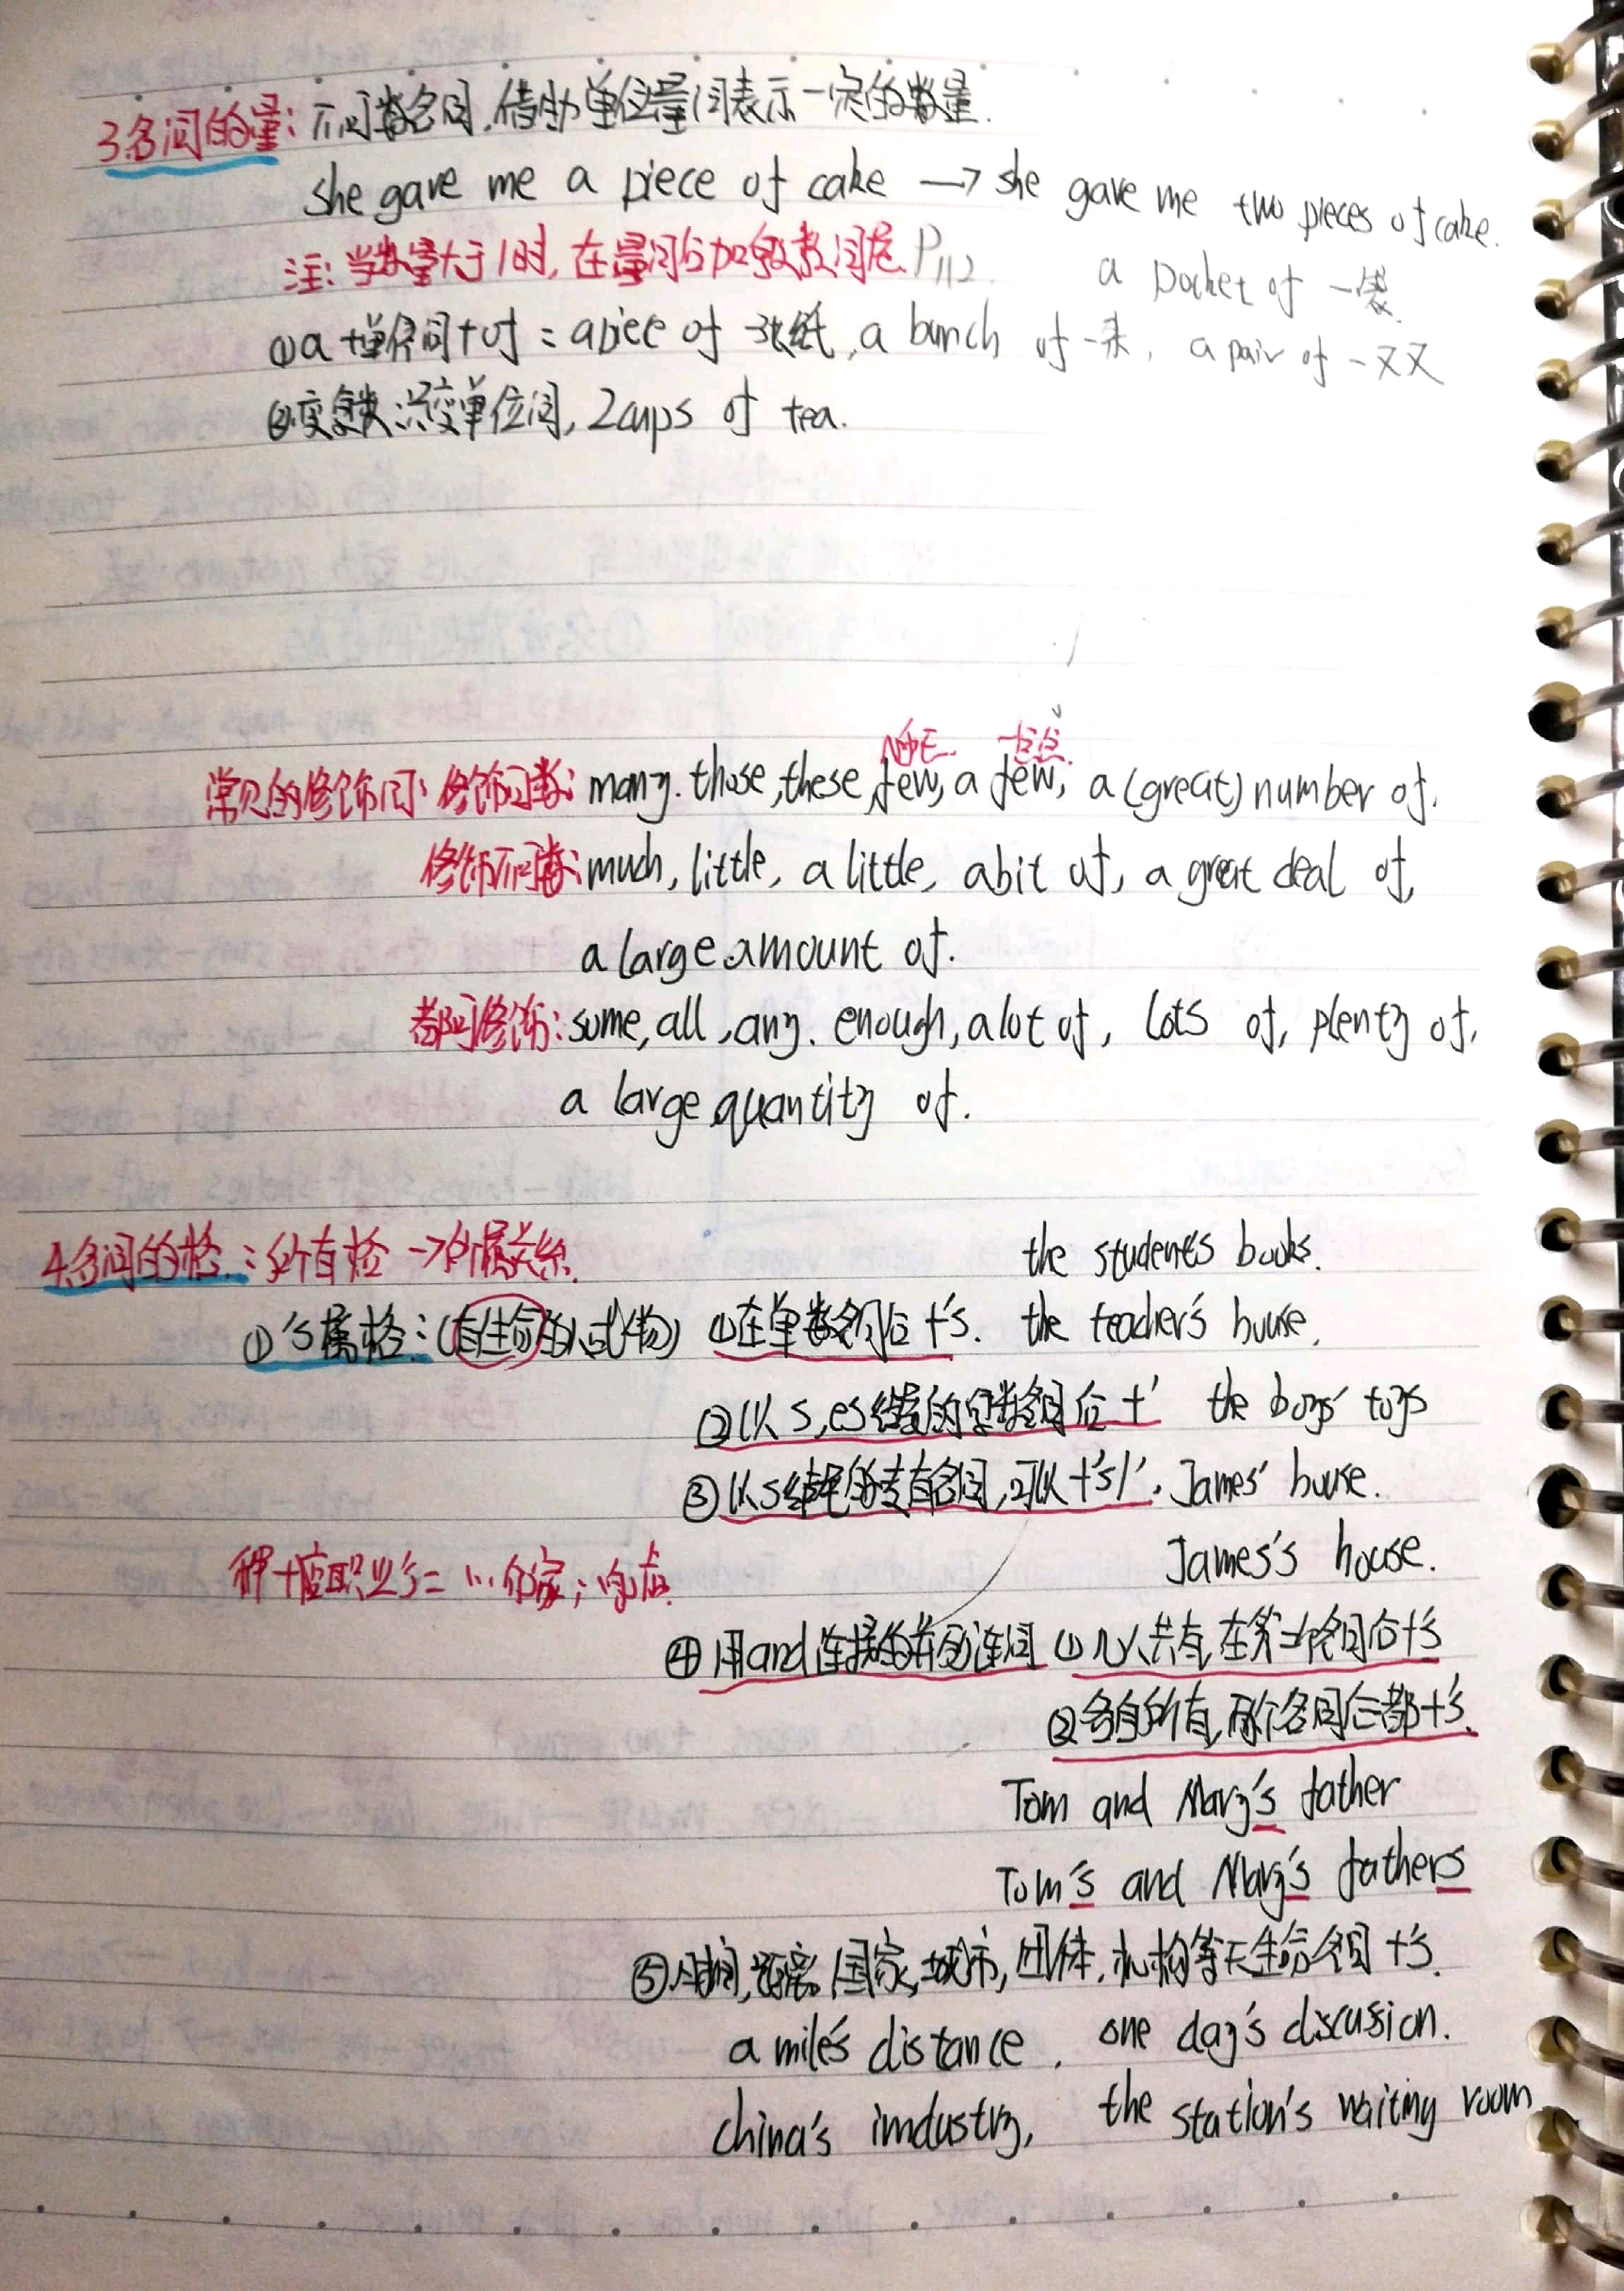 3.名词的量: 不可数名词,借助单位量词表示一定的数量.
she gave me a piece of cake → she gave me two pieces of cake.
注: 当数量大于1时, 在量词后加复数词尾. P112. a Pocket of 一袋
①a+单位词+of = a piece of 一张纸, a bunch of 一束, a pair of 一双
②变复数:只变单位词, 2cups of tea.
一点点
常见的修饰词: 修饰可数: many. those, these, few, a few, a (great) number of.
修饰不可数: much, little, a little, a bit of, a great deal of,
a large amount of.
都可修饰: some, all, any. enough, a lot of, lots of, plenty of,
a large quantity of.
4.名词的格: 所有格 → 所属关系.
the student's books.
① 's属格: (有生命的人或物) ①在单数名词后+'s. the teacher's house.
②以s,es结尾的复数名词后+' the boys' toys
③以s结尾的专有名词,可以+'s/'. James' house.
James's house.
职业's = …的家; 的店.
④用and连接的并列连词 ①几人共有,在第二个名词后+'s
②各自所有,两个名词后都+'s.
Tom and Mary's father
Tom's and Mary's fathers
⑤时间,距离,国家,城市,团体,机构等无生命名词+'s.
a mile's distance. one day's discussion.
china's imdustry, the station's waiting room